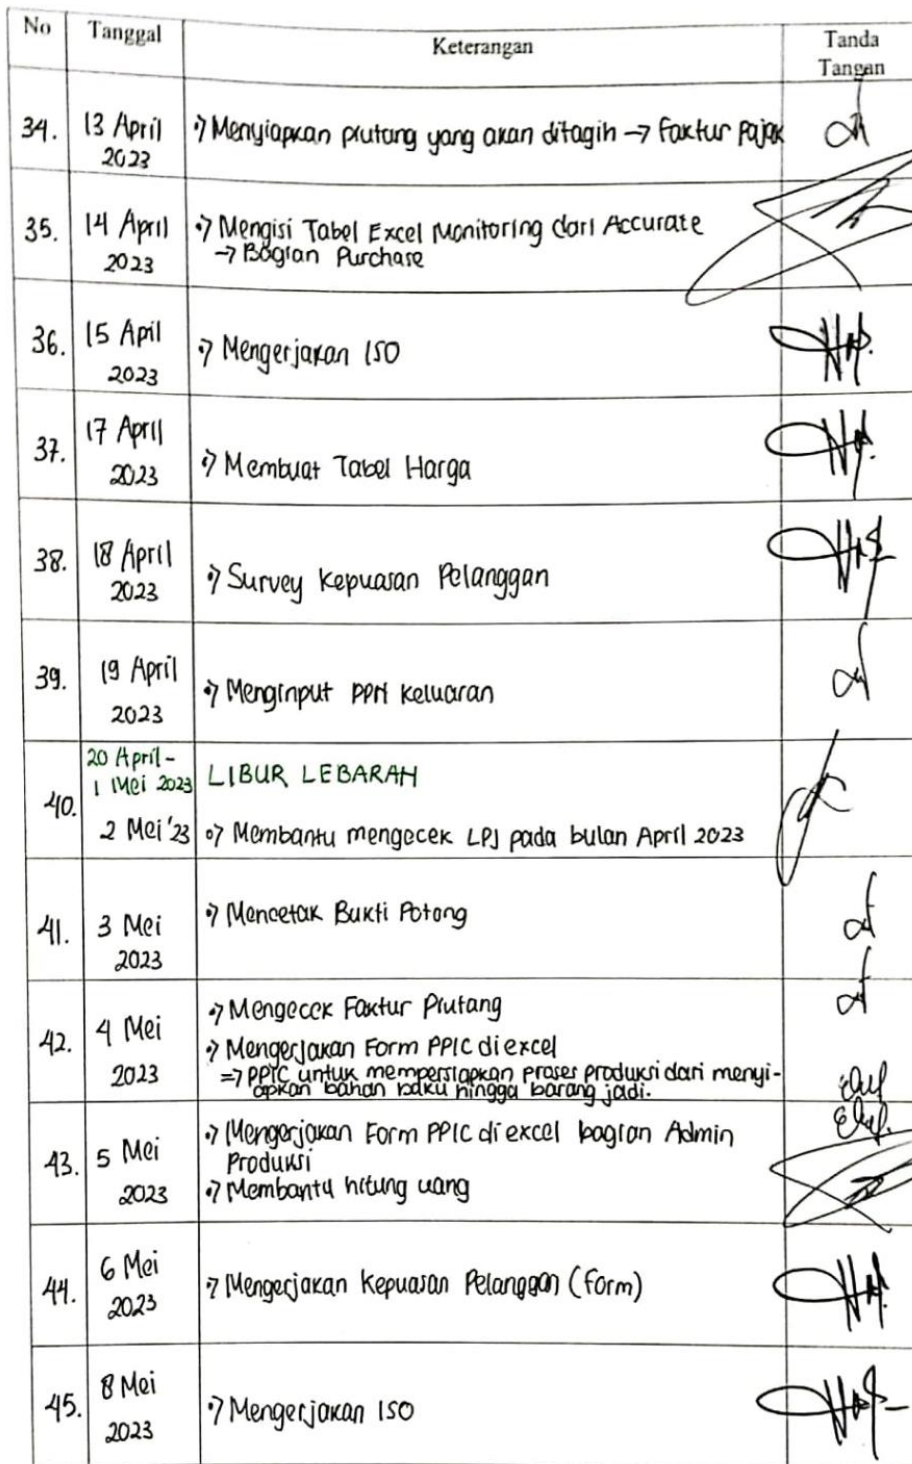 No Tanggal Keterangan Tanda
Tangan
34. 13 April
2023
Menyiapkan piutang yang akan ditagih → Faktur Pajak
35. 14 April
2023
Mengisi Tabel Excel Monitoring dari Accurate
→ Bagian Purchase
36. 15 Apil
2023
Mengerjakan ISO
37. 17 April
2023
Membuat Tabel Harga
38. 18 April
2023
Survey Kepuasan Pelanggan
39. 19 April
2023
Menginput PPN Keluaran
40. 20 April -
1 Mei 2023 LIBUR LEBARAN
2 Mei '23 Membantu mengecek LPJ pada bulan April 2023
41. 3 Mei
2023
Mencetak Bukti Potong
42. 4 Mei
2023
Mengecek Faktur Piutang
Mengerjakan Form PPIC di excel
⇒ PPIC untuk mempersiapkan proses produksi dari menyi-
apkan bahan baku hingga barang jadi.
43. 5 Mei
2023
Mengerjakan Form PPIC di excel bagian Admin
Produksi
Membantu hitung uang
44. 6 Mei
2023
Mengerjakan Kepuasan Pelanggan (Form)
45. 8 Mei
2023
Mengerjakan ISO